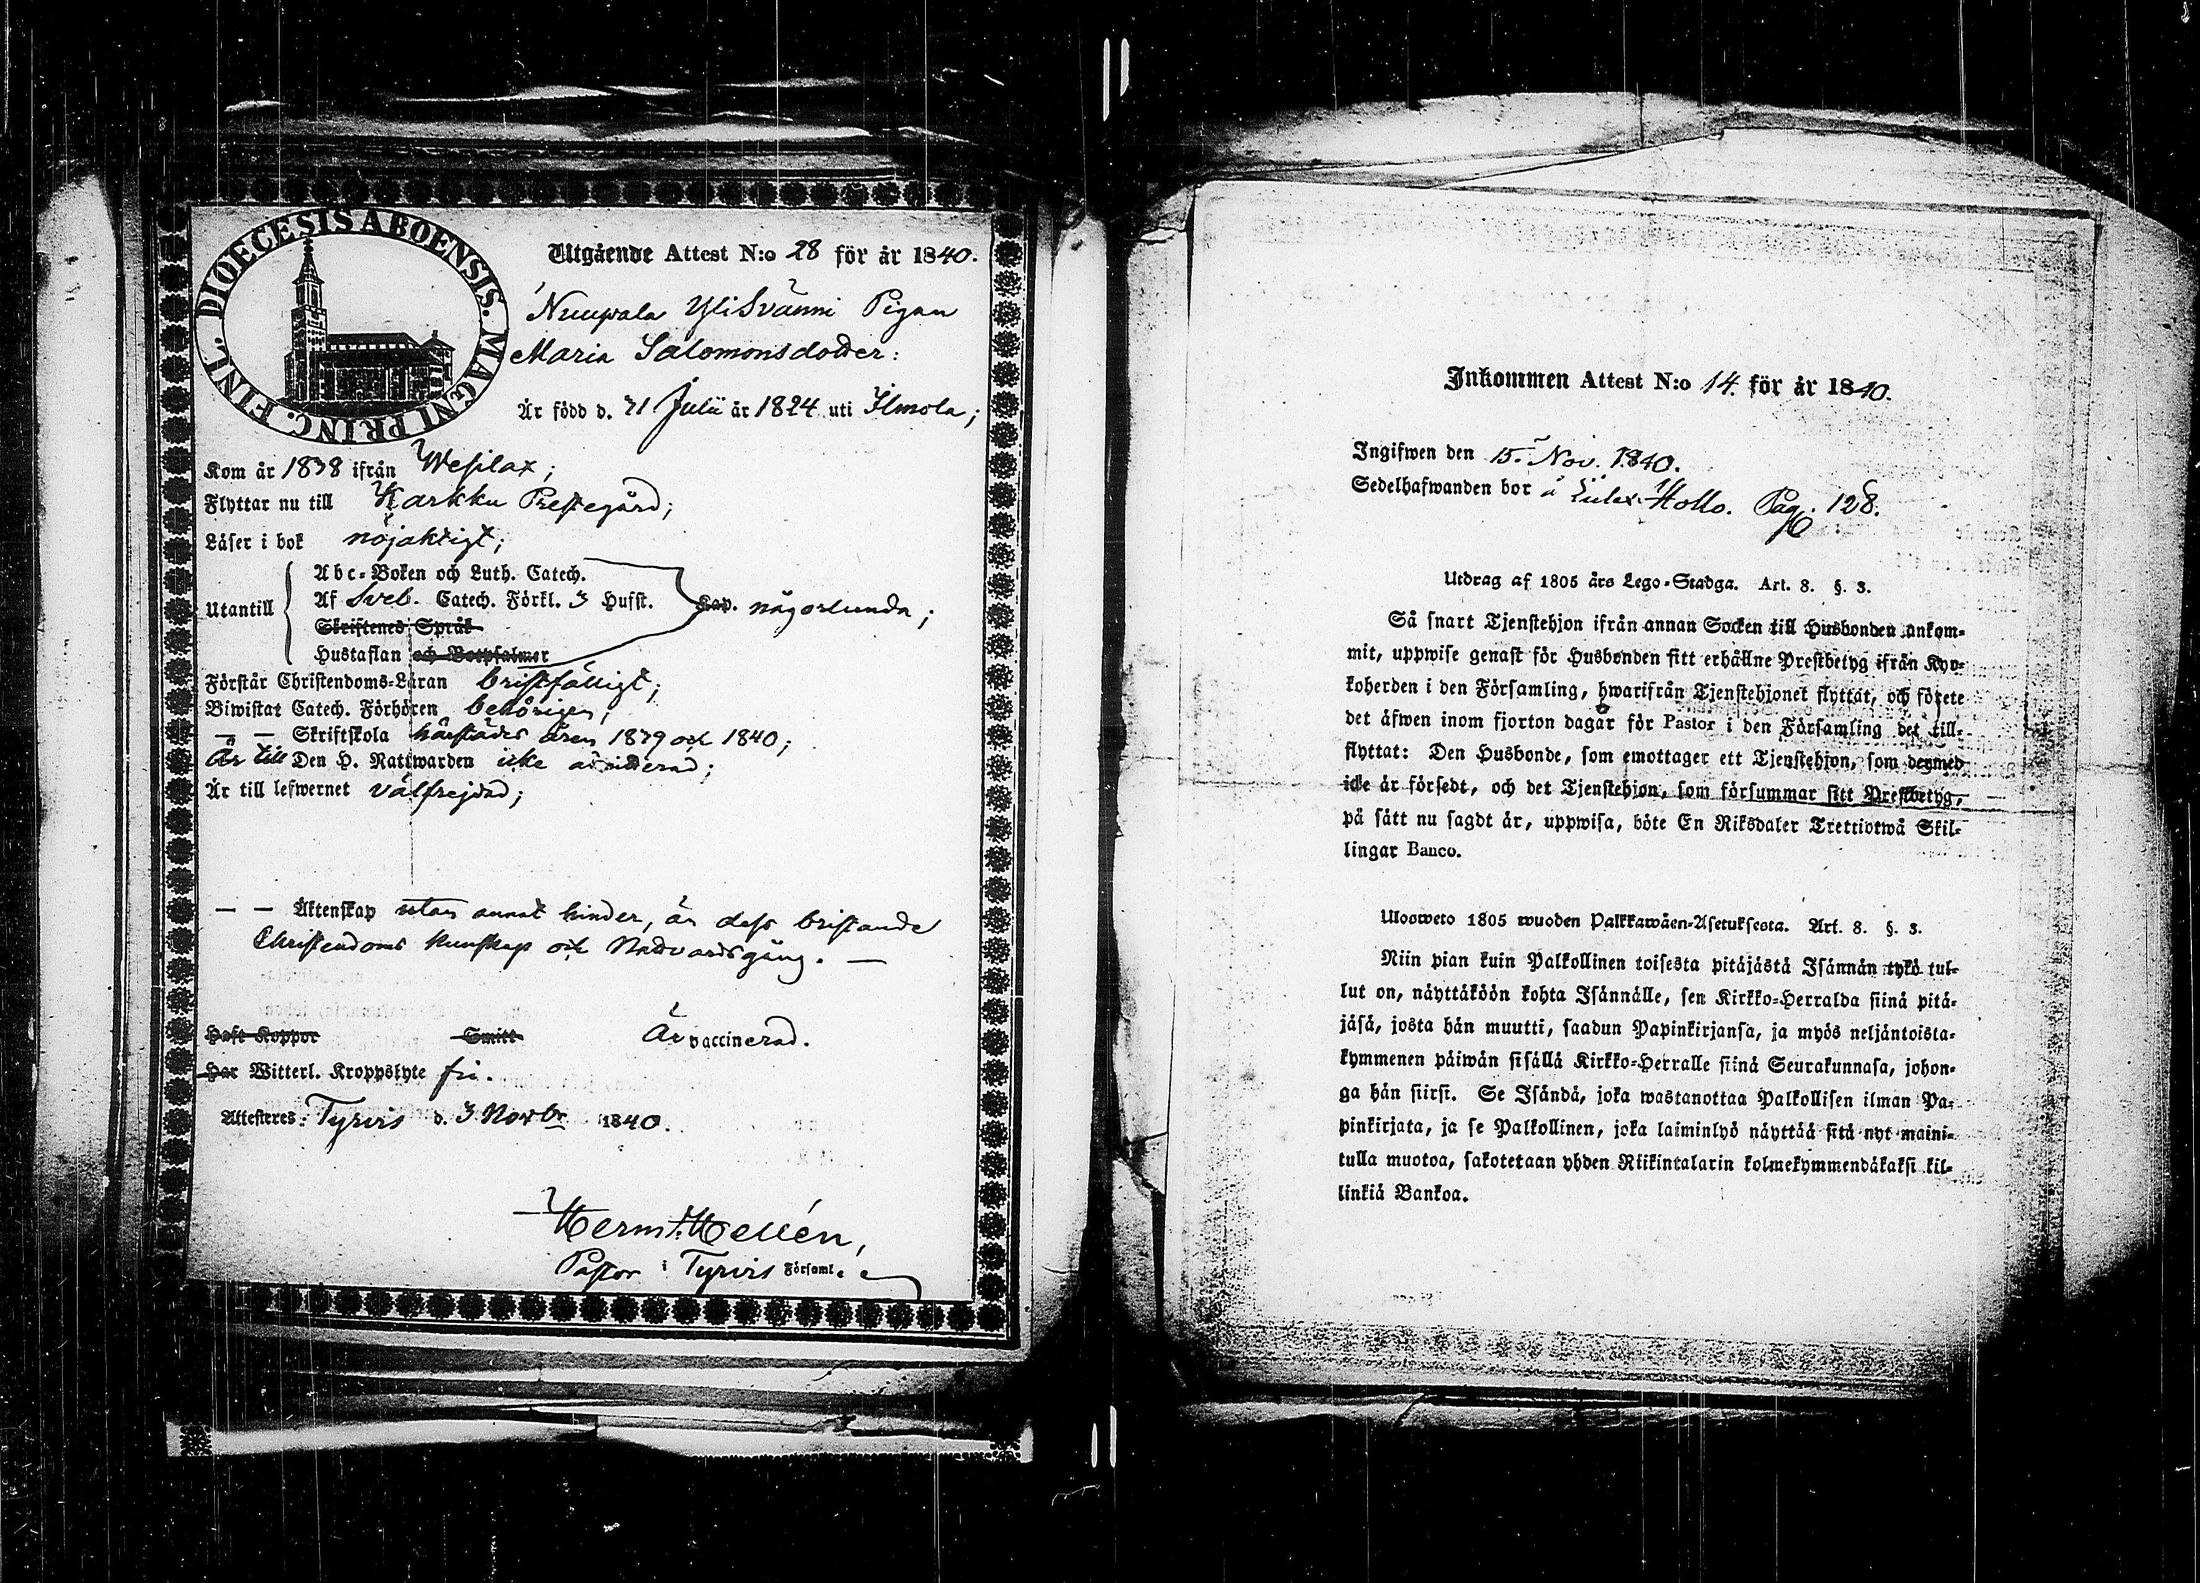 DIOECESIS ABOENSIS. MAGNI PRINC. FINL.
Utgående Attest N:o 28 för år 1840.
Nuupala YliSvänni Pigan
Maria Salomonsdotter:
Är född d. 21 Julii år 1824 uti Ilmola;
Kom år 1838 ifrån Wesilax;
Flyttar nu till Karkku Prestegård;
Läser i bok nöjaktigt;
Utantill
Abc-Boken och Luth. Catech.
Af Sveb. Catech. Förkl. 3 Hufst. Cap. någorlunda;
Skriftenes Språk
Hustaflan och Botpsalmer
Förstår Christendoms-Läran bristfälligt;
Biwistat Catech. Förhören behörigen;
— — Skriftskola härstädes åren 1839 och 1840;
Är till Den H. Nattwarden icke admitterad;
Är till lefwernet välfrejdad;
— — Äktenskap utan annat hinder, än dess bristande
Christendoms kunskap och Nattvardsgång. —
Haft Koppor Smitt Är vaccinerad.
Har Witterl. Kroppslyte fri.
Attesteres: Tyrvis d. 3 Novbr 1840.
Herm. Hellén,
Pastor i Tyrvis Församl.
Inkommen Attest N:o 14. för år 1840.
Ingifwen den 15. Nov. 1840.
Sedelhafwanden bor å Hollo. Pag. 128.
Utdrag af 1805 års Lego-Stadga. Art. 8. §. 3.
Så snart Tjenstehjon ifrån annan Socken till Husbonden ankom-
mit, uppwise genast för Husbonden sitt erhållne Prestbetyg ifrån Kyr-
koherden i den Församling, hwarifrån Tjenstehjonet flyttat, och förete
det äfwen inom fjorton dagar för Pastor i den Församling det till-
flyttat: Den Husbonde, som emottager ett Tjenstehjon, som dermed
icke är försedt, och det Tjenstehjon, som försummar sitt Prestbetyg,
på sätt nu sagdt är, uppwisa, böte En Riksdaler Trettiotwå Skil-
lingar Banco.
Ulosweto 1805 wuoden Palkkawäen-Asetuksesta. Art. 8. §. 3.
Niin pian kuin Palkollinen toisesta pitäjästä Isännän tykö tul-
lut on, näyttäköön kohta Isännälle, sen Kirkko-Herralda siinä pitä-
jäsä, josta hän muutti, saadun Papinkirjansa, ja myös neljäntoista-
kymmenen päiwän sisällä Kirkko-Herralle siinä Seurakunnasa, johon-
ga hän siirsi. Se Isändä, joka wastanottaa Palkollisen ilman Pa-
pinkirjata, ja se Palkollinen, joka laiminlyö näyttää sitä nyt maini-
tulla muotoa, sakotetaan yhden Riikintalarin kolmekymmendäkaksi kil-
linkiä Bankoa.